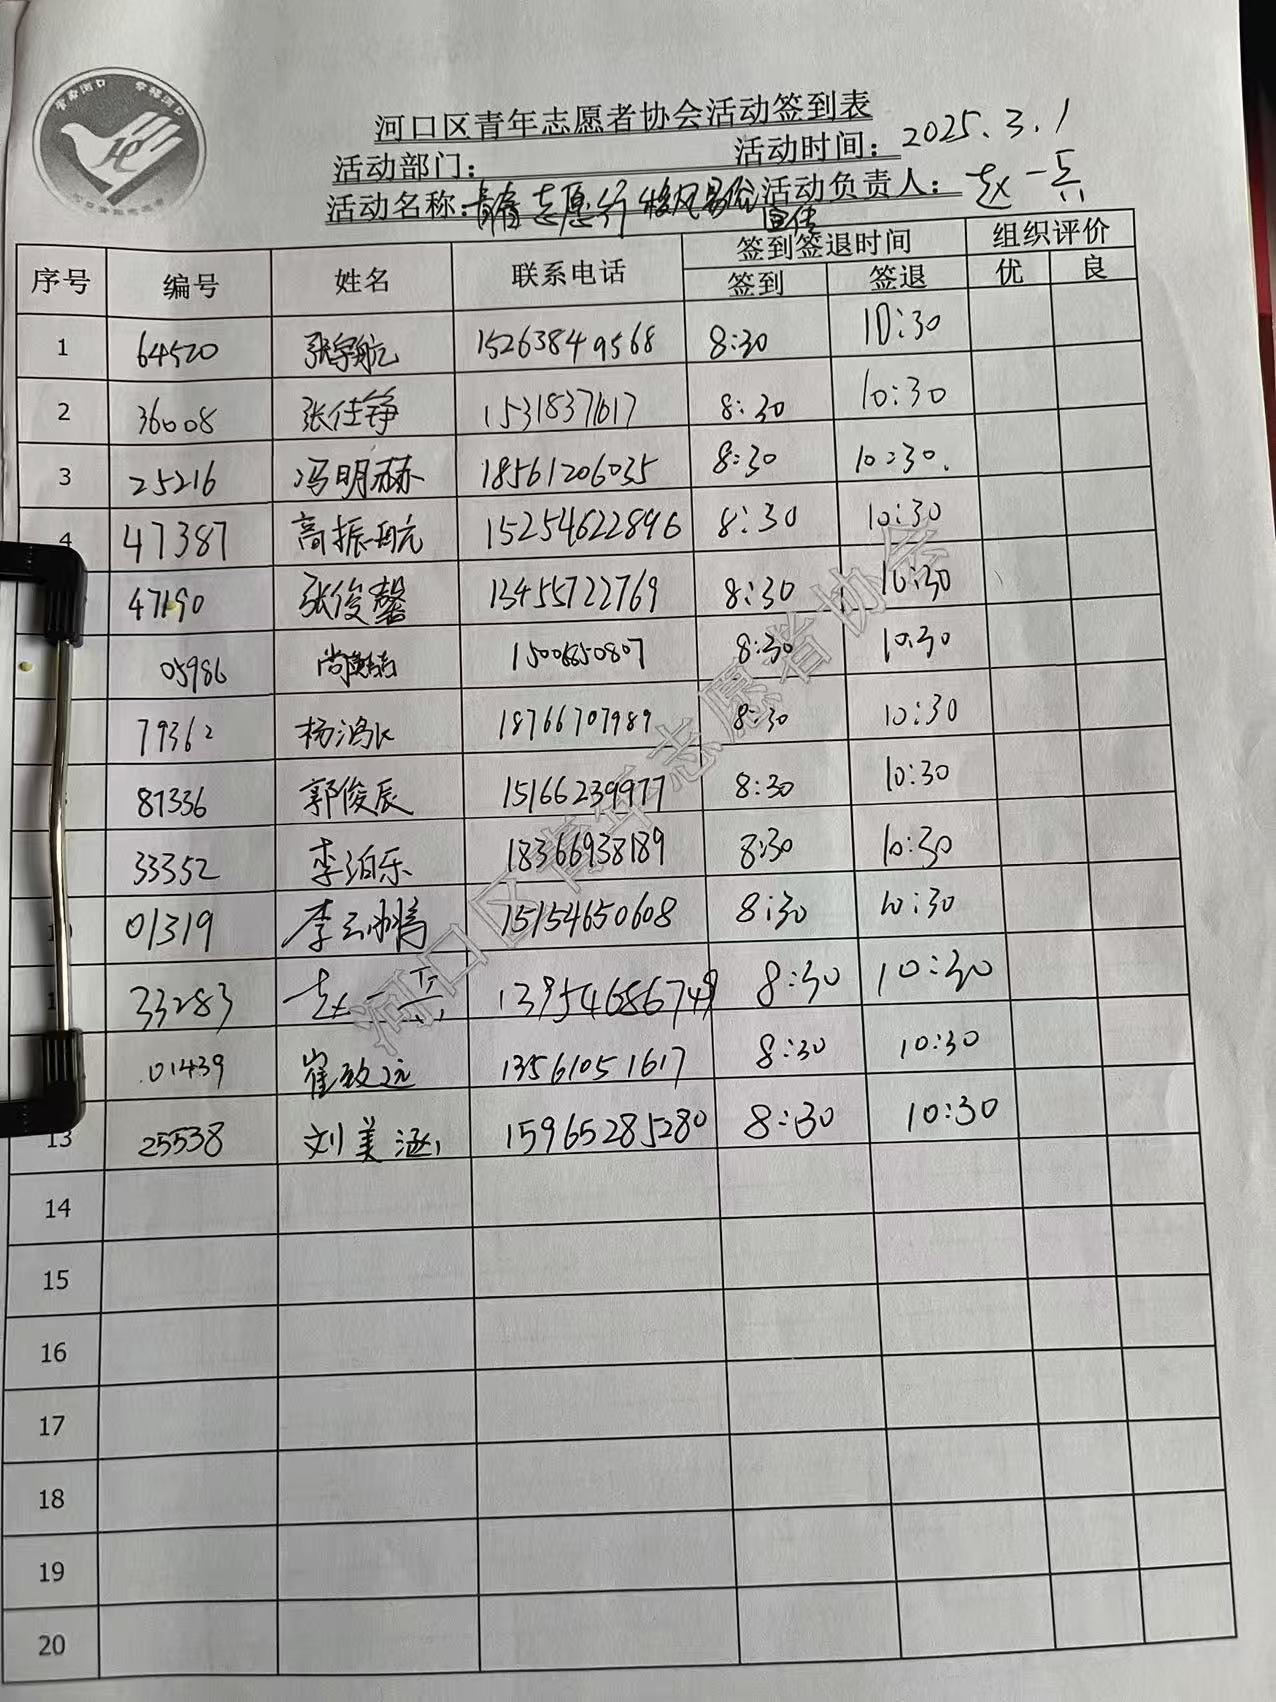 河口区青年志愿者协会活动签到表
活动部门： 活动时间：2025.3.1
活动名称：青春志愿行 移风易俗宣传 活动负责人：赵一兵
序号 编号 姓名 联系电话 签到签退时间 组织评价
签到 签退 优 良
1 64520 张宇航 15263849568 8:30 10:30
2 36008 张仕铮 1531837617 8:30 10:30
3 25216 冯明赫 18561206035 8:30 10:30.
4 47387 高振航 15254622896 8:30 10:30
47190 张俊馨 13455722769 8:30 10:30
05986 15006850807 8:30 10:30
79362 杨鸿 18766707989 8:30 10:30
8 81336 郭俊辰 15166239977 8:30 10:30
33352 李泊乐 18366938189 8:30 10:30
10 01319 李云鹏 15154650608 8:30 10:30
33283 赵一兵 13954686749 8:30 10:30
01439 崔致远 13561051617 8:30 10:30
13 25538 刘美涵 15965285280 8:30 10:30
14
15
16
17
18
19
20
河口区青年志愿者协会